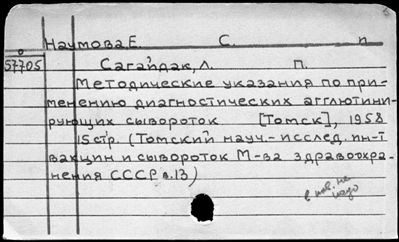 Наумова Е. С. п
57705 Сагайдак, Л. П.
Методические указания по при-
менению диагностических агглютини-
рующих сывороток [Томск], 1958
15 стр. (Томский науч.-исслед. ин-т
вакцин и сывороток М-ва здравоохра-
нения СССР в. 13)